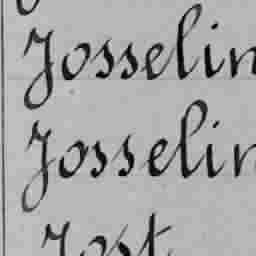 Josselin
Josselin
Jost